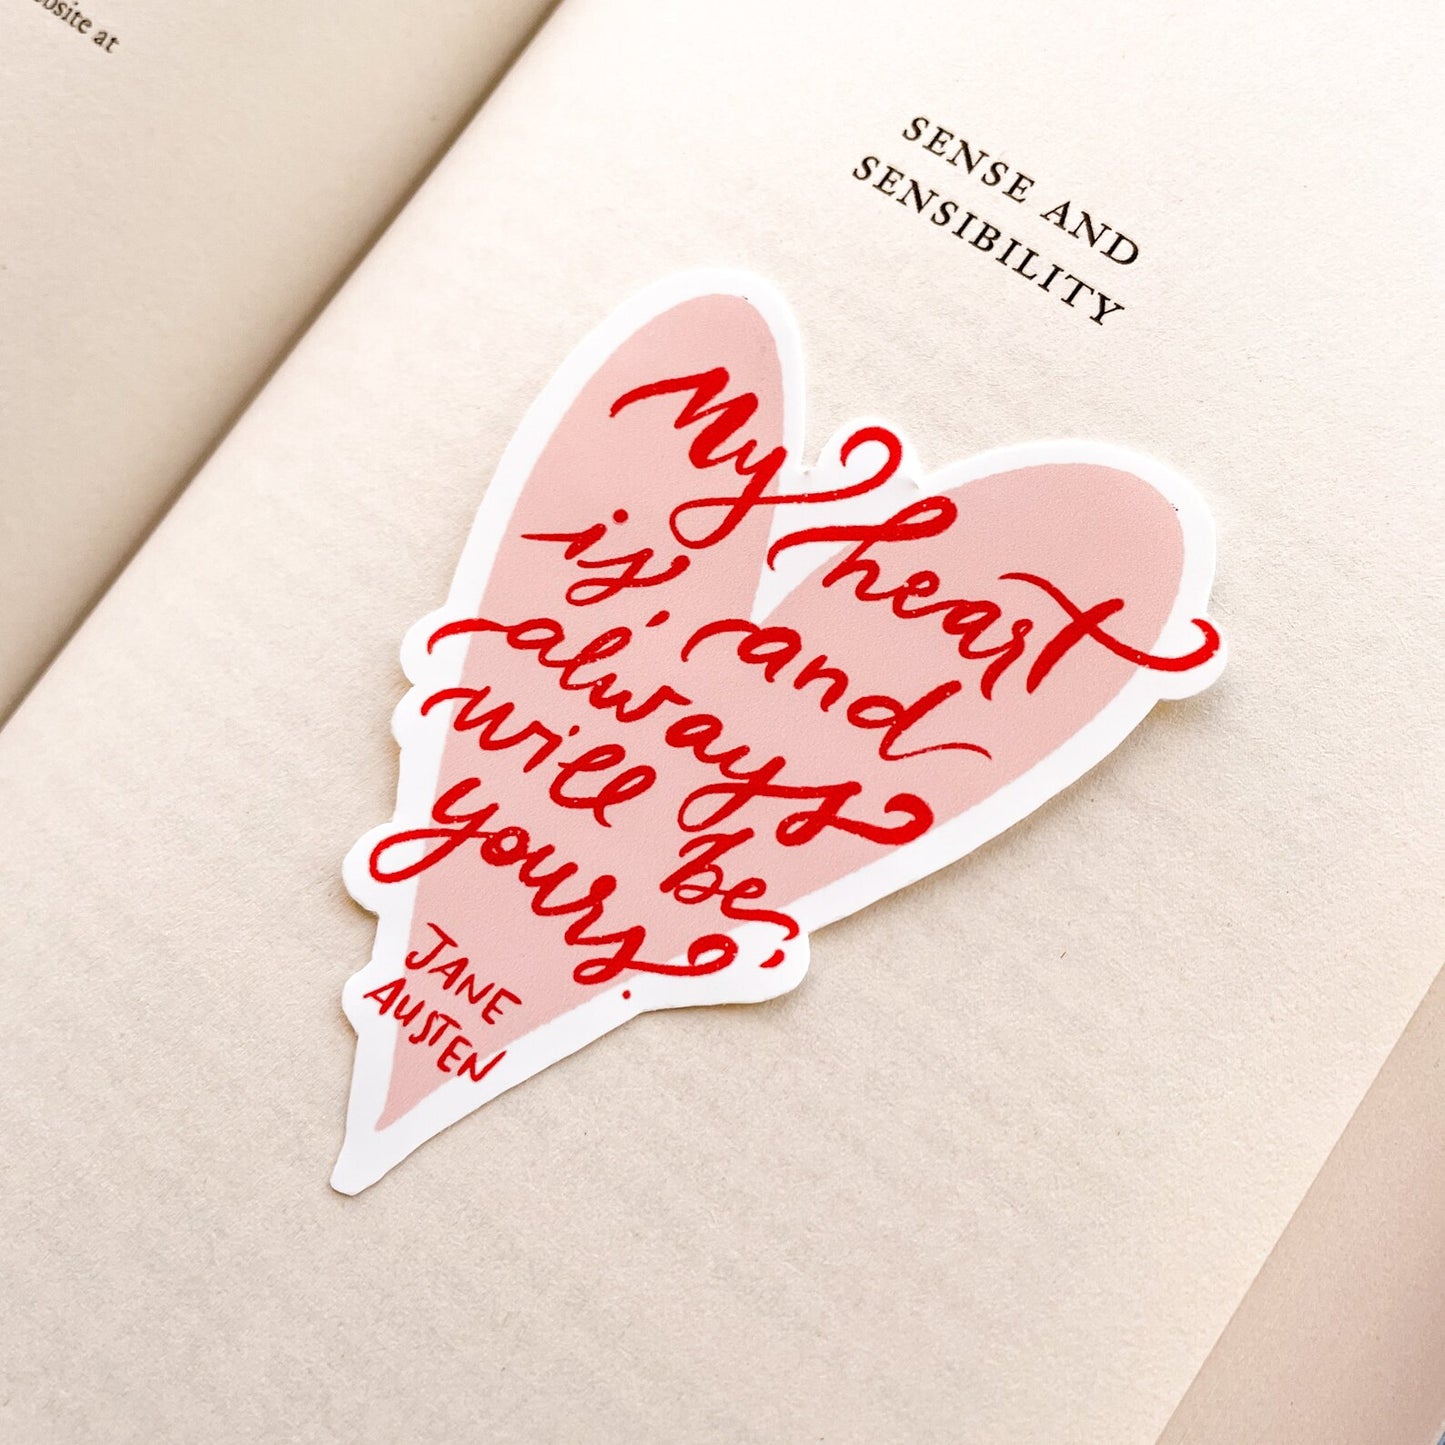 at
SENSE AND
SENSIBILITY
My heart
is, and
always
will be,
yours.
JANE
AUSTEN